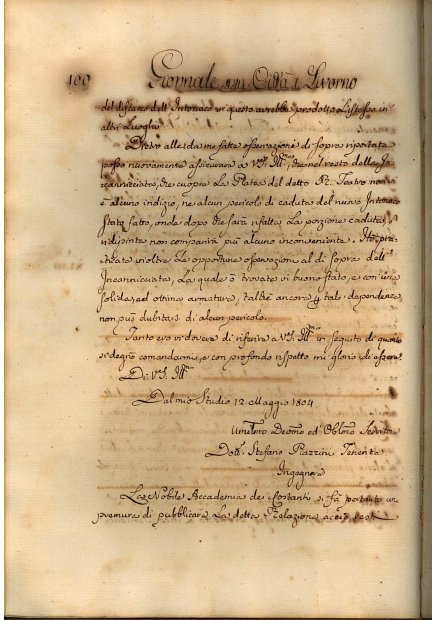 100 Giornale della Città di Livorno
del distacco dell'Intonaco in questo avrebbe prodotto l'istesso in
altri Luoghi
Dietro alle da me fatte osservazioni di sopra riportate
posso nuovamente assicurare a V.S. Ill.ma, che nel resto dell'In
canniciata, che cuopre La Platea del detto R. Teatro non v'
è alcuno indizio, ne alcun pericolo di caduta del nuovo Intonaco
stato fatto, onde dopo che sarà rifatta La porzione caduta, e
ridipinta non comparirà più alcuno inconveniente. Ho pra
ticate inoltre Le opportune osservazioni al di sopra dell'
Incanniciata, La quale ò trovata in buono stato, e con una
solida, ed ottima armatura, talchè ancora p tale dependenza
non può dubitarsi di alcun pericolo.
Tanto ero in dovere di riferire a V.S. Ill.ma in seguito di quanto
si degnò comandarmi, e con profondo rispetto mi glorio di essere
Di V.S. Ill.ma
Dal mio Studio 12 Maggio 1804
Umilmo Devmo ed Obblmo Servitore
Dott. Stefano Piazzini Tenente
Ingegnere
La Nobile Accademia de Costanti si fà pertanto un
premura di pubblicare La detta Relazione acciò